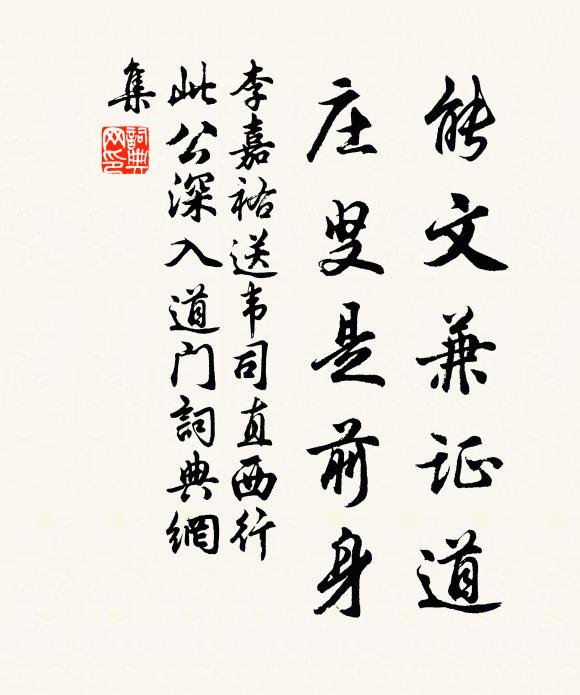 能文兼证道
庄叟是前身
李嘉祐送韦司直西行
此公深入道门詞典網
集
詞典网印